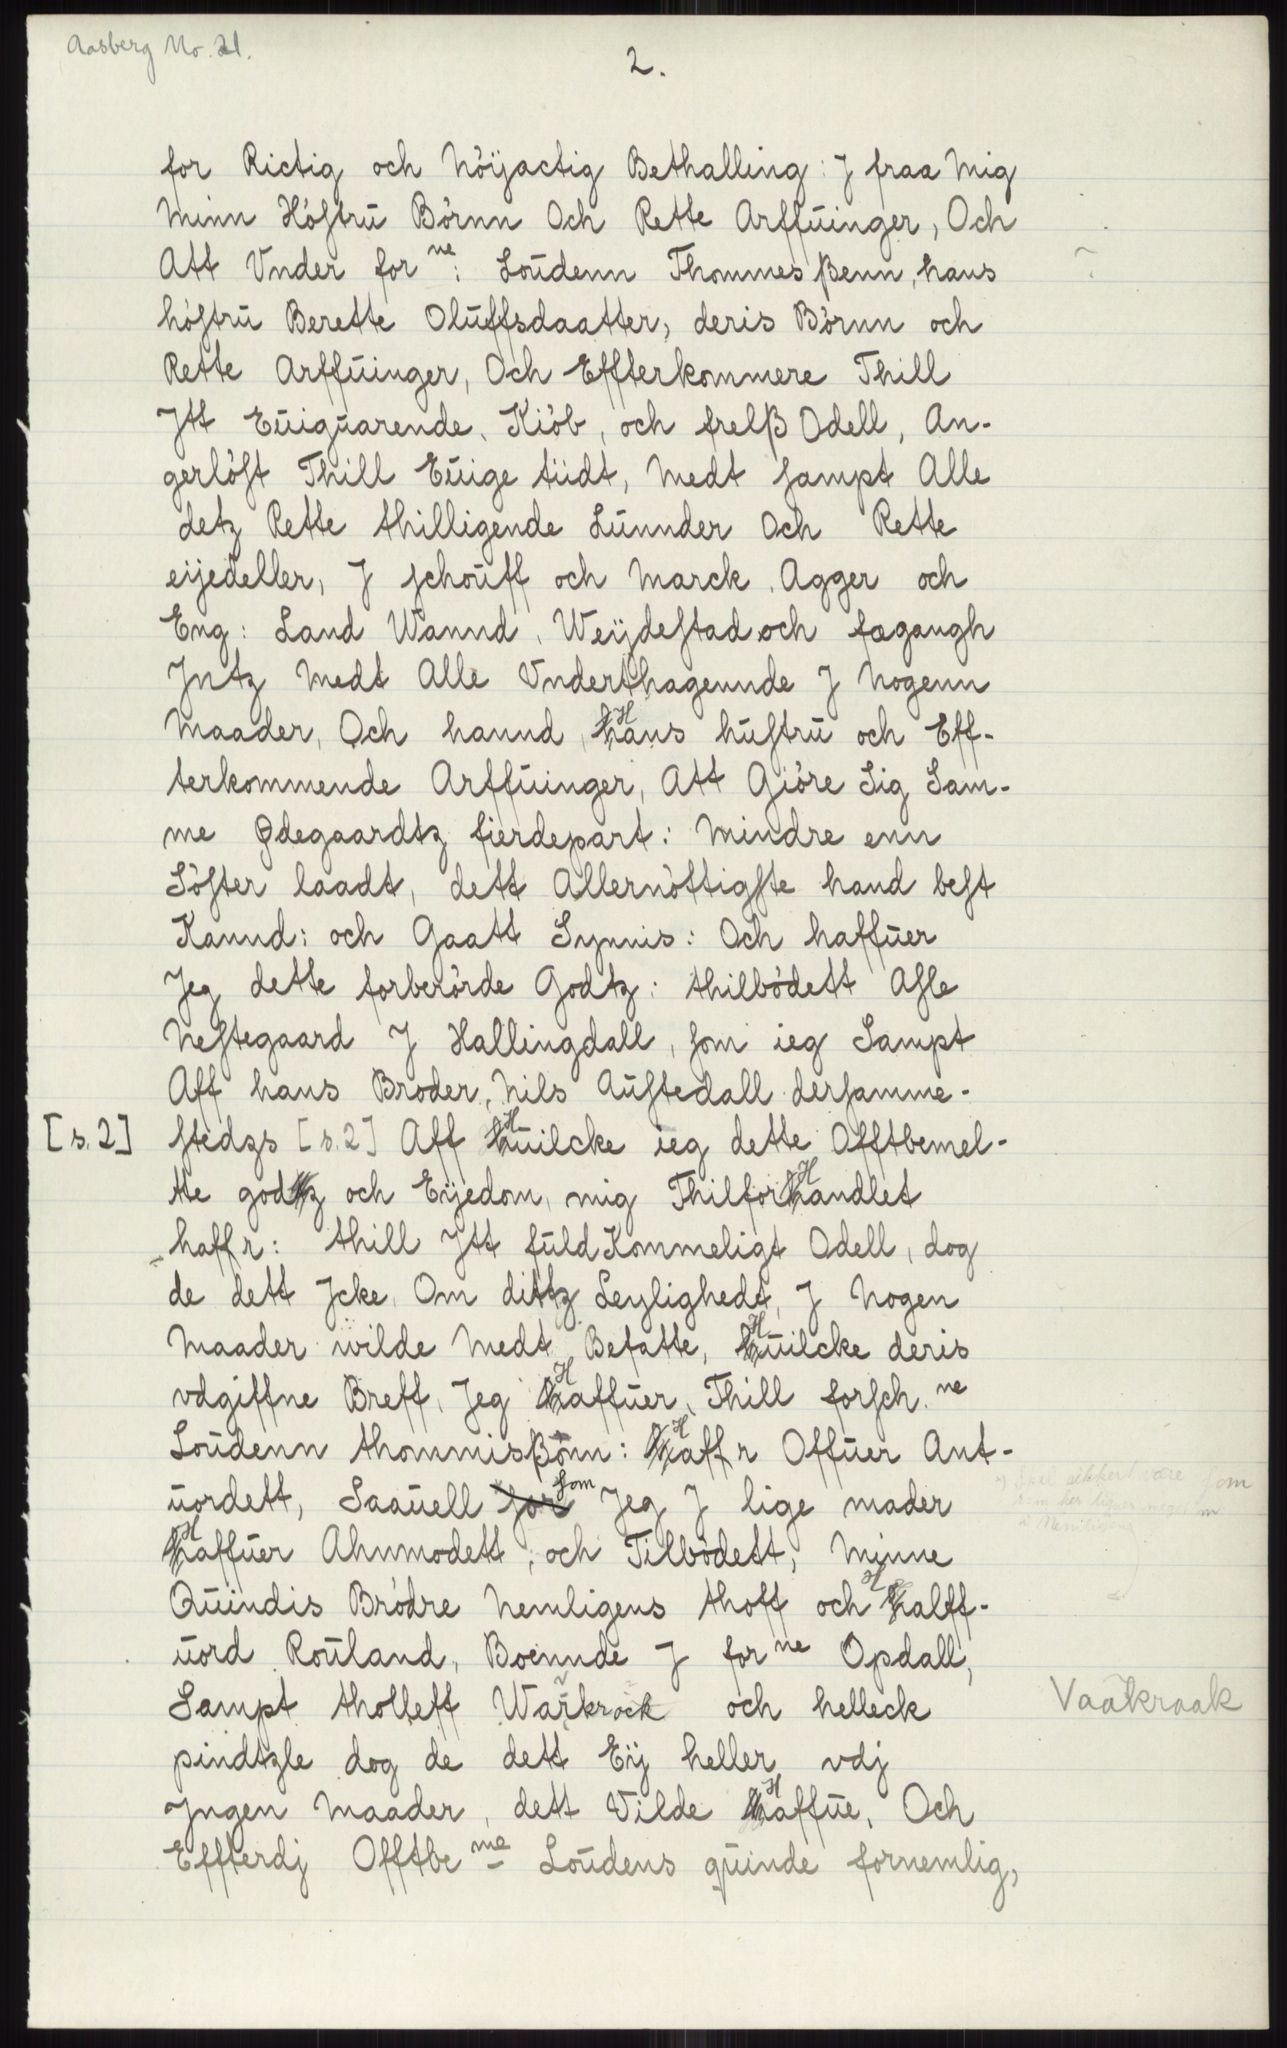 Aasberg No. 21.
2.
for Rictig och Nöÿactig Bethalling: J fraa Mig
Minn Höstrŭ Börnn Och Rette Arffŭinger, Och
Att Vnder for ne: Loŭdenn Thommesßenn, hans
höstrŭ Berette Olŭffsdaatter, deris Börnn och
Rette Arffŭinger, Och Effterkommere Thill
Jtt Eŭigŭarende, Kiöb, och frelß Odell, An-
gerlöst Thill Eŭige tiidt, Medt sampt Alle
detz Rette thilligende Lŭnnder Och Rette
eijedeller, J schoŭff och Marck, Agger och
Eng: Land Wannd, Weÿdestad och fægangh
Jntz Medt Alle Vnderthagennde J Nogenn
Maader, Och hannd, Hans hŭstrŭ och Eff-
terkommende Arffŭinger, Att Giöre Sig Sam-
me Ødegaardtz fierdepart: Mindre enn
Söster laadt, dett Allernöttigste hand best
Kannd: och Gaatt Synnis: Och haffŭer
Jeg dette forberörde Godtz: thilbödett Asle
Nestegaard J Hallingdall, som ieg Sampt
Aff hans Broder, Nils Aŭstedall dersamme-
[s. 2] stedzs [s. 2] Aff Hŭilcke ieg dette Offtbemel-
tte godtz och Eÿedom, mig ThilforHandlet
haffr: thill Jtt fŭldKommeligt Odell, dog
de dett Jcke, Om dittz Leylighedt, J Nogen
Maader wilde Medt Befatte, Hŭilcke deris
vdgiffne Breff, Jeg Haffŭer, Thill forsch. ne
Loŭdenn thommisßönn: Haffr Offŭer Ant-
ŭordett, Saaŭell som Jeg J lige mader
Haffŭer Ahnmodett, och Tilbödett, Minne
Qŭindis Brödre Nemligens thoff och Halff-
ŭord Roŭland, Boennde J for ne Opdall,
Sampt tholleff Warkrock och helleck Vaakraak
pindtzle dog de dett Eÿ heller vdj
Jngen Maader, dett Vilde Haffŭe, Och
Effterdj Offtbe me Loŭdens qŭinde fornemlig,